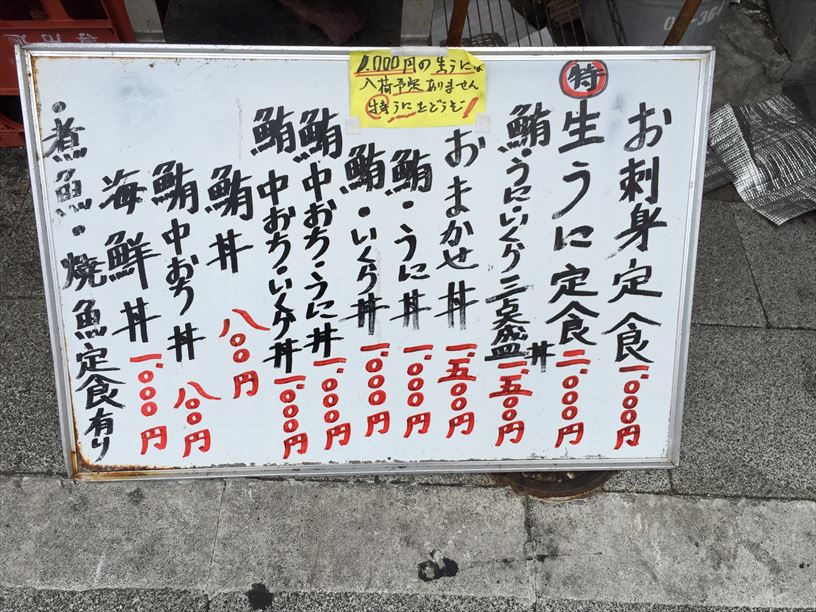 1,000円の生うには
入荷予定ありません
特うにをどうぞ!
お刺身定食 一、000円
特 生うに定食 二、000円
鮪・うにいくら三点盛丼 一、五00円
おまかせ丼 一、五00円
鮪・うに丼 一、000円
鮪・いくら丼 一、000円
鮪中おち・うに丼 一、000円
鮪中おち・いくら丼 一、000円
鮪丼 八00円
鮪中おち丼 八00円
海鮮丼 一、000円
・煮魚・焼魚定食有り